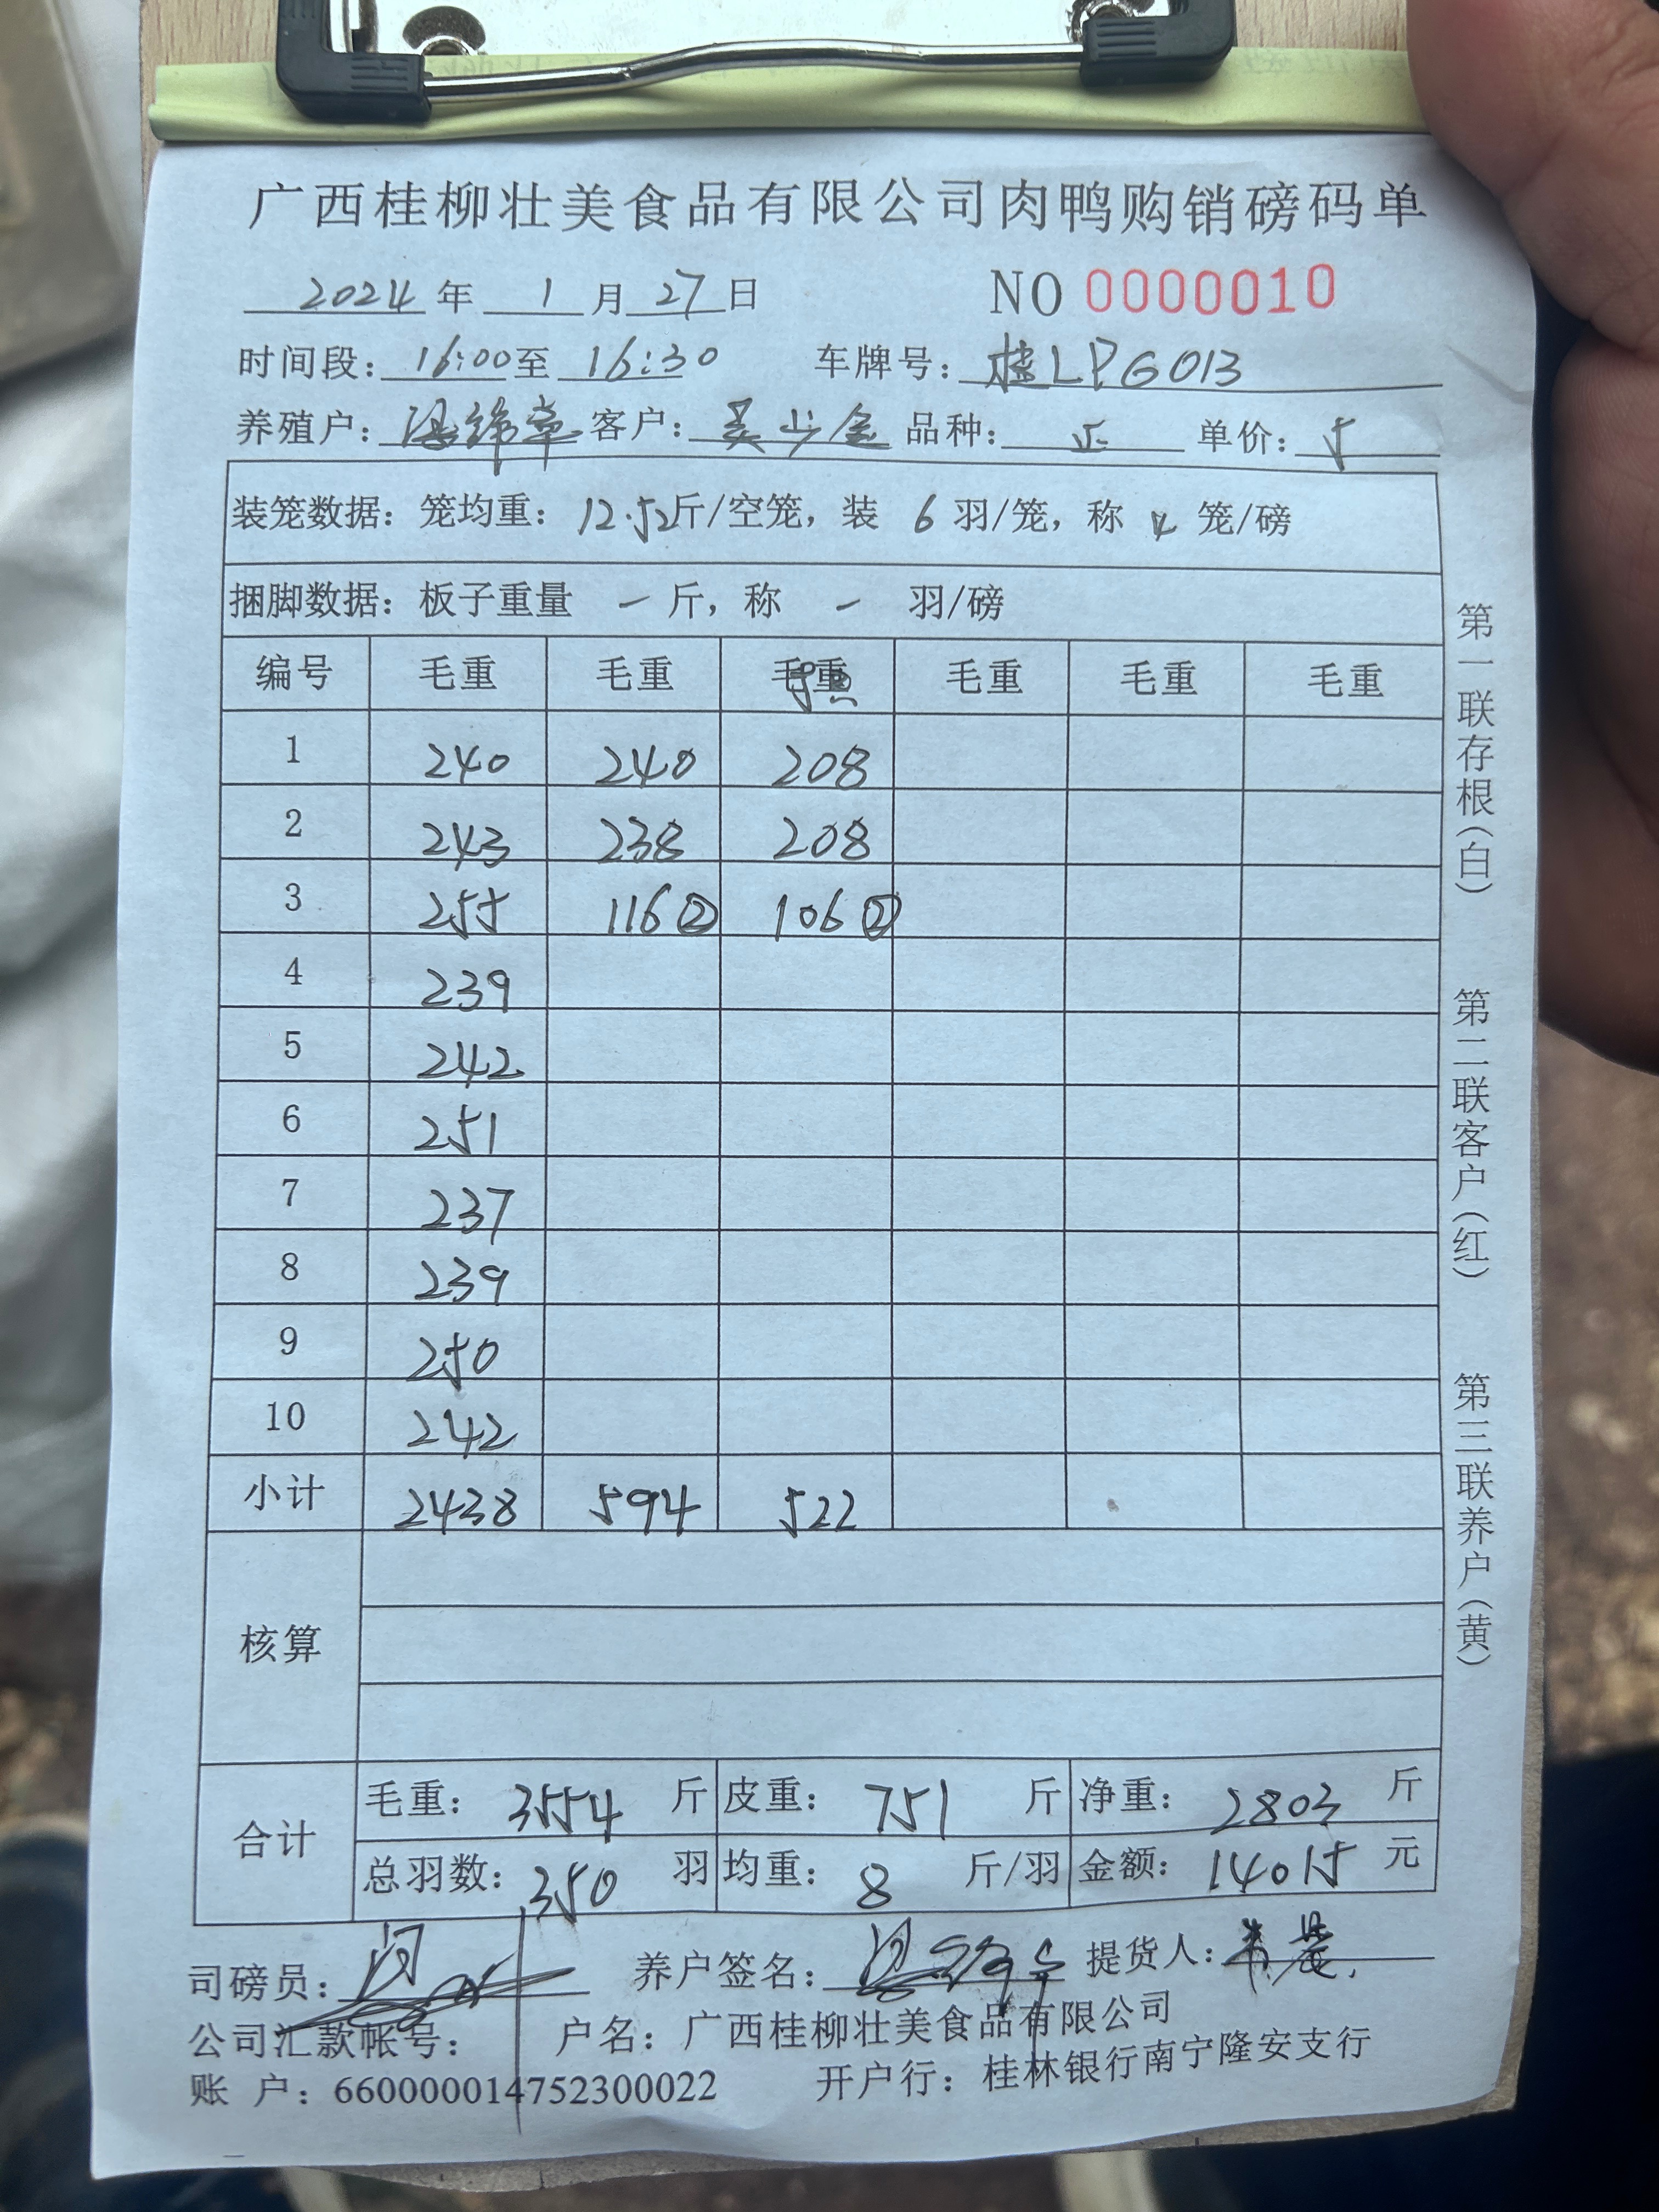 广西桂柳壮美食品有限公司肉鸭购销磅码单
2024年 1月27日 NO 0000010
时间段: 16:00至 16:30 车牌号: 桂LPG013
养殖户: 客户: 吴少金 品种: 正 单价: 5
装笼数据: 笼均重: 12.52斤/空笼, 装 6 羽/笼, 称 4 笼/磅
捆脚数据: 板子重量 - 斤, 称 - 羽/磅
编号 毛重 毛重 毛重 毛重 毛重 毛重
1 240 240 208
2 243 238 208
3 255 116② 106②
4 239
5 242
6 251
7 237
8 239
9 250
10 242
小计 2438 594 522
核算
合计
毛重: 3554 斤 皮重: 751 斤 净重: 2803 斤
总羽数: 350 羽 均重: 8 斤/羽 金额: 14015 元
司磅员: 养户签名: 提货人:
公司汇款帐号: 户名: 广西桂柳壮美食品有限公司
账 户: 660000014752300022 开户行: 桂林银行南宁隆安支行
第一联存根(白)
第二联客户(红)
第三联养户(黄)